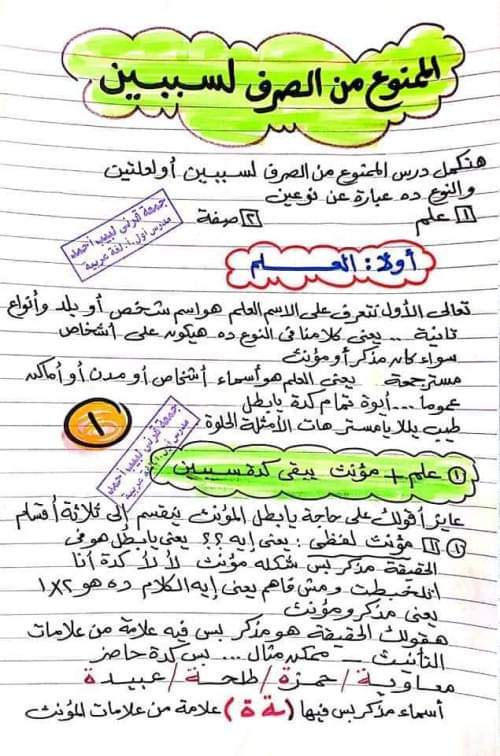 الممنوع من الصرف لسببين
هنكمل درس الممنوع من الصرف لسببين أولعلتين
والنوع ده عبارة عن نوعين
١ علم ٢ صفة
جمعة قرني لبيب أحمد
مدرس أول أ: لغة عربية
أولا: العلم
تعالى الأول نتعرف على الاسم العلم هواسم شخص أو بلد وأنواع
تانية .. يعنى كلامنا فى النوع ده هيكون على أشخاص
سواء كان مذكر أومؤنث
مستر جمعة يعنى العلم هوأسماء أشخاص أو مدن أو أماكن
عموما ... أيوة تمام كدة يابطل
طيب يللا يامستر هات الأمثلة الحلوة
١
جمعة قرني لبيب أحمد
مدرس أول أ: لغة عربية
١ علم + مؤنث يبقى كدة سببين
عايز أقولك على حاجة يابطل المؤنث ينقسم إلى ثلاثة أقسام
١ مؤنث لفظى : يعنى إيه ؟؟ يعنى يابطل هوفى
الحقيقة مذكر بس شكله مؤنث لأ لأ كدة أنا
اتلخبطت ومش فاهم يعنى إيه الكلام ده هو ٢×١
يعنى مذكر ومؤنث
هقولك الحقيقة هو مذكر بس فيه علامة من علامات
التأنيث _ ممكن مثال ... بس كدة حاضر
معاوية / حمزة / طلحة / عبيدة
أسماء مذكر بس فيها (ـة ة) علامة من علامات المؤنث